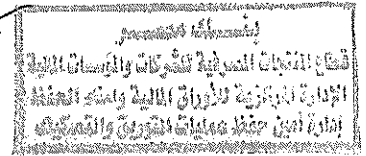 بنك مصر
قطاع المنتجات المصرفية للشركات والمؤسسات المالية
الإدارة المركزية للأوراق المالية وامناء الحفظ
إدارة أمين حفظ عمليات التوريق والصكوك